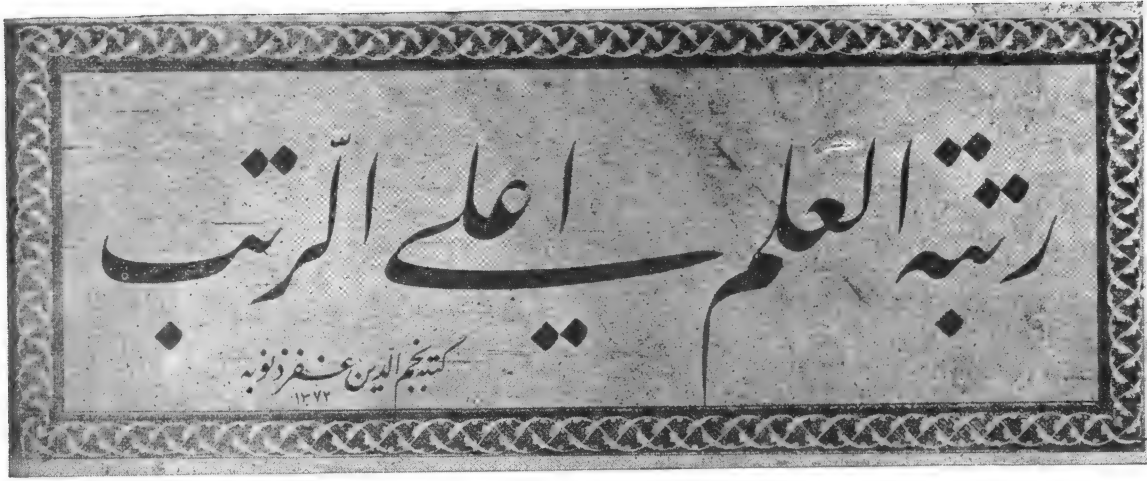 رتبة العلم اعلى الرتب
كتبه نجم الدين غفر ذنوبه
١٣٧٢